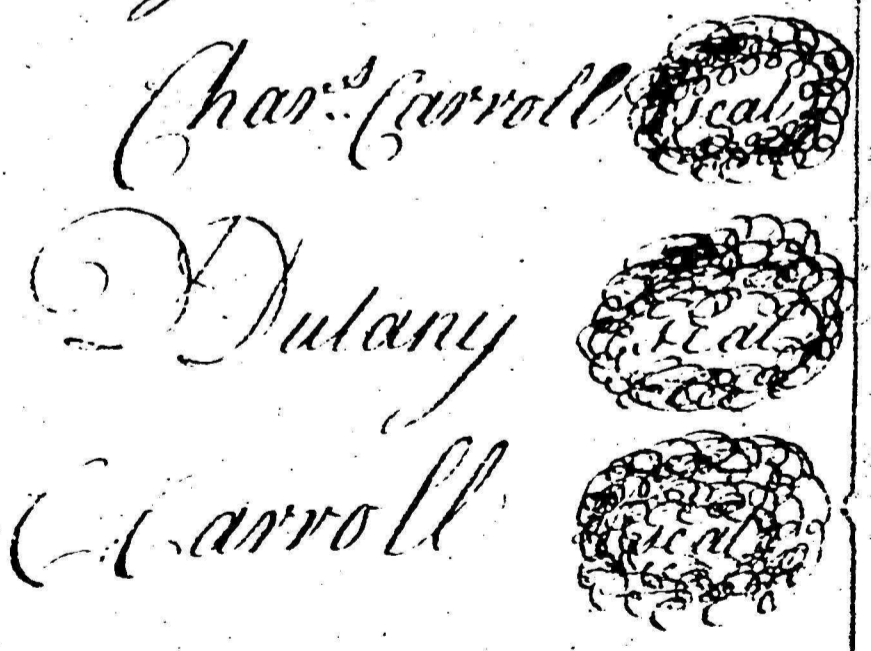 Char.s Carroll seal
D Dulany seal
C Carroll seal